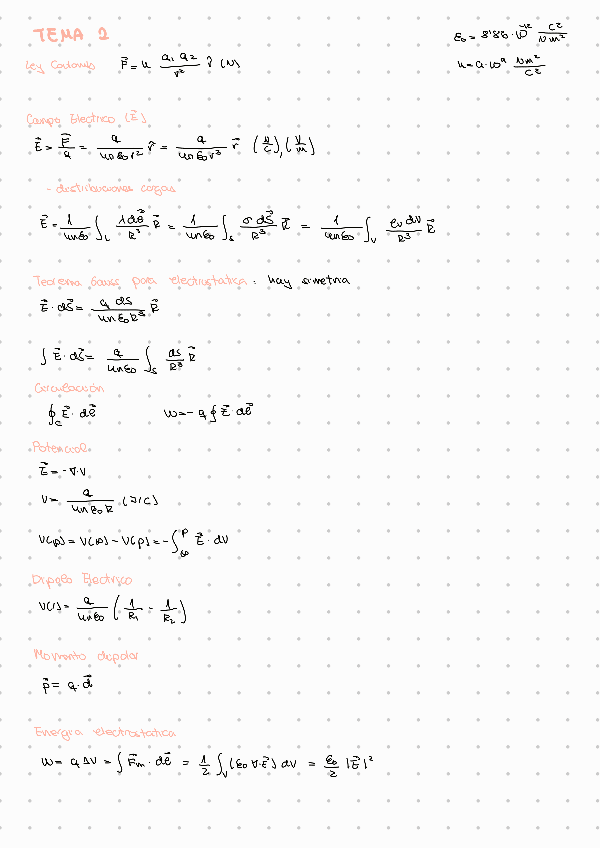 TEMA 2
ε₀ = 8'85 · 10⁻¹² C²/Nm²
Ley Coulomb F⃗ = k q₁ q₂/r² r̂ (N)
k = 9·10⁹ Nm²/C²
Campo Electrico (E⃗)
E⃗ = F⃗/q = q/4πε₀r² r̂ = q/4πε₀r³ r⃗ (N/C), (V/m)
- distribuciones cargas
E⃗ = 1/4πε₀ ∫_L λdℓ⃗/R³ R⃗ = 1/4πε₀ ∫_S σ dS⃗/R³ R⃗ = 1/4πε₀ ∫_V ρv dV/R³ R⃗
Teorema Gauss para electrostatica: hay simetria
E⃗ · dS⃗ = q dS/4πε₀R³ R⃗
∫ E⃗ · dS⃗ = q/4πε₀ ∫_S dS/R³ R⃗
Circulación
∮_C E⃗ · dℓ⃗ W = - q ∮ E⃗ · dℓ⃗
Potencial
E⃗ = -∇·V
V = q/4πε₀R (J/C)
V(p) = V(p) - V(p) = -∫_∞^P E⃗ · dV
Dipolo Electrico
V(r) = q/4πε₀ (1/R₁ - 1/R₂)
Momento dipolar
p⃗ = q · d⃗
Energia electrostatica
W = q ΔV = ∫ F⃗m · dℓ⃗ = 1/2 ∫_V (ε₀ ∇·E⃗) dV = ε₀/2 |E⃗|²